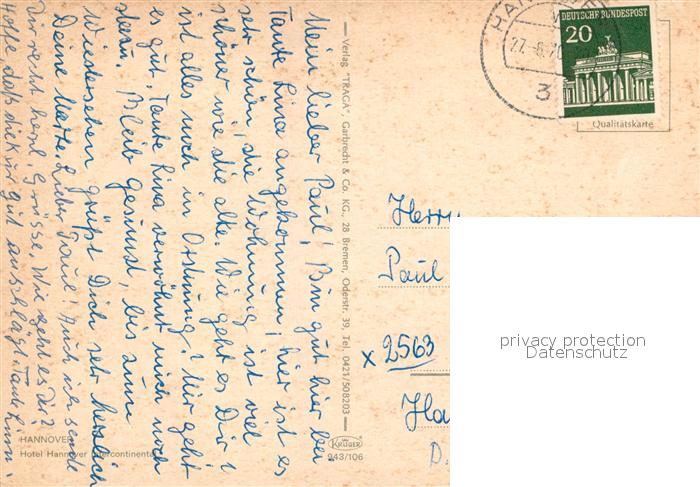 Mein lieber Paul! Bin gut hier bei
Tante Lina angekommen, hier ist es
sehr schön, die Wohnung ist viel
schöner wie die alte. Wie geht es Dir?
ist alles noch in Ordnung? Mir geht
es gut, Tante Lina verwöhnt mich noch
Bleib gesund, bis zum
Wiedersehen grüßt Dich sehr herzlich
Deine Marta. Lieber Paul! Auch ich sende
Dir recht herzl. Grüsse. Wie geht es Dir?
Hoffe, daß die Kur gut anschlägt. Tante Lina
Verlag "TRAGA" Garbrecht & Co. KG., 28 Bremen, Oderstr. 39, Tel. 0421/508203
DEUTSCHE BUNDESPOST
20
HAN
27.-6.70
3
Qualitätskarte
Herrn
Paul
x 2563
Ha
D.
privacy protection
Datenschutz
KRÜGER
943/106
HANNOVER
Hotel Hannover Intercontinental